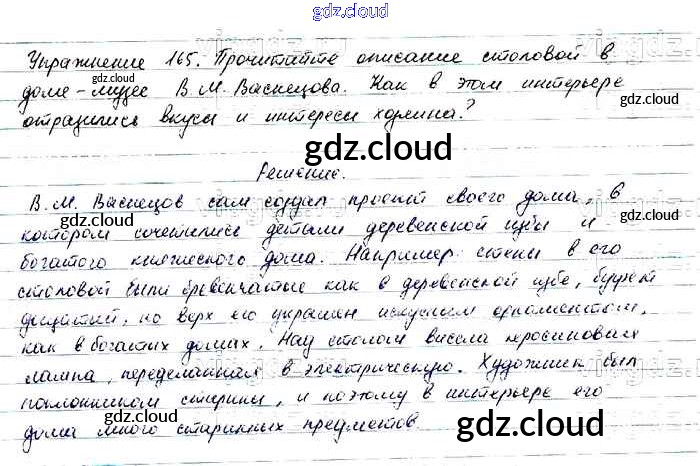 gdz.cloud
Упражнение 165. Прочитайте описание столовой в
доме-музее В.М. Васнецова. Как в этом интерьере
отразились вкусы и интересы хозяина?
Решение.
В.М. Васнецов сам создал проект своего дома, в
котором сочетались детали деревенской избы и
богатого княжеского дома. Например: стены в его
столовой были бревенчатые как в деревенской избе, буфет
дощатый, но верх его украшен искусным орнаментом,
как в богатых домах. Над столом висела керосиновая
лампа, переделанная в электрическую. Художник был
поклонником старины, и поэтому в интерьере его
дома много старинных предметов